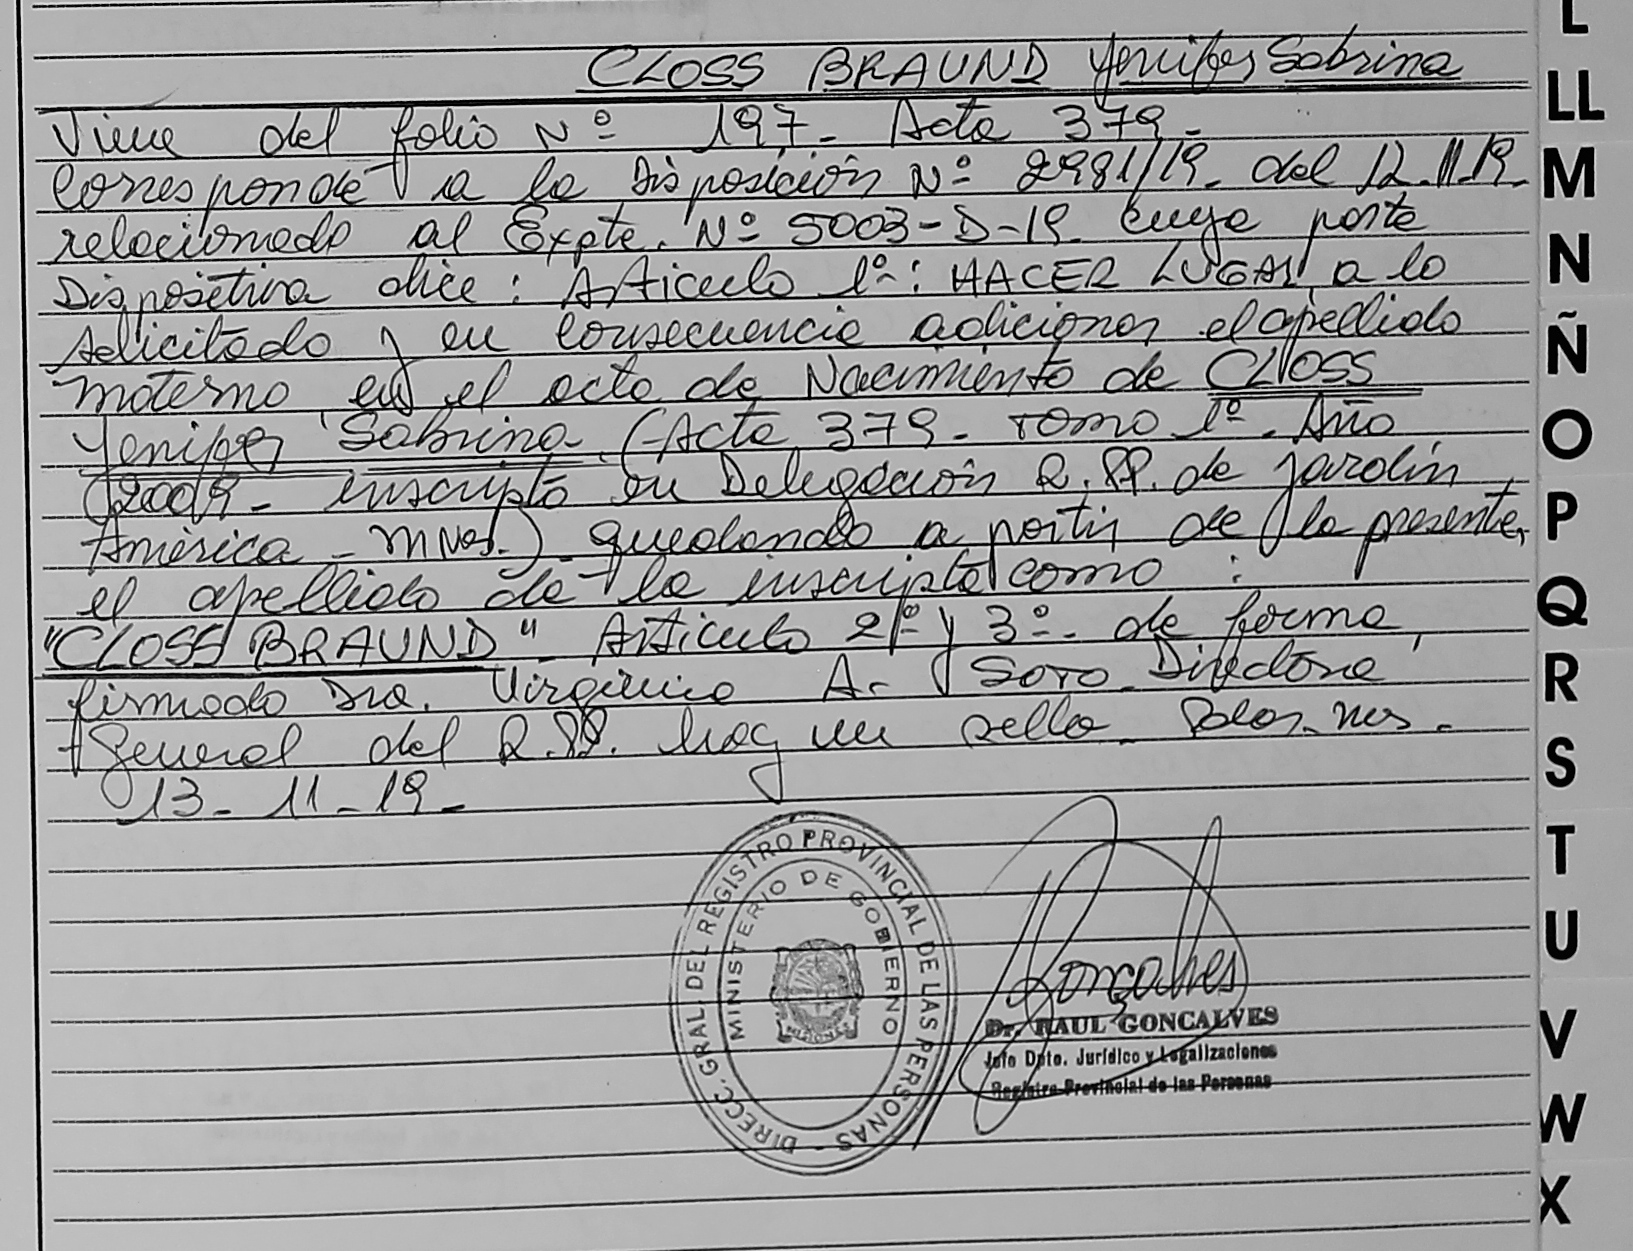 CLOSS BRAUND Yenifer Sabrina
Viene del folio Nº 197- Acta 379-
Corresponde a la Disposición Nº 2981/19- del 12.11.19-
relacionado al Expte. Nº 5003-D-19- cuya parte
Dispositiva dice: Articulo 1º: HACER LUGAR a lo
solicitado y en consecuencia adicionar el apellido
materno en el acta de Nacimiento de CLOSS
Yenifer Sabrina (Acta 379- Tomo 1º- Año
2009- inscripta en Delegación R.PP. de Jardín
América - Mnes.) quedando a partir de la presente,
el apellido de la inscripta como:
"CLOSS BRAUND" Articulo 2º y 3º- de forma,
firmado Dra. Virginia A- Soto Directora
General del R.PP. hay un sello- Pdas. Mes.-
13-11-19-
DIRECC. GRAL. DEL REGISTRO PROVINCIAL DE LAS PERSONAS -
MINISTERIO DE GOBIERNO
MISIONES
Gonçalves
Dr. RAUL GONCALVES
Jefe Dpto. Jurídico y Legalizaciones
Registro Provincial de las Personas
L
LL
M
N
Ñ
O
P
Q
R
S
T
U
V
W
X